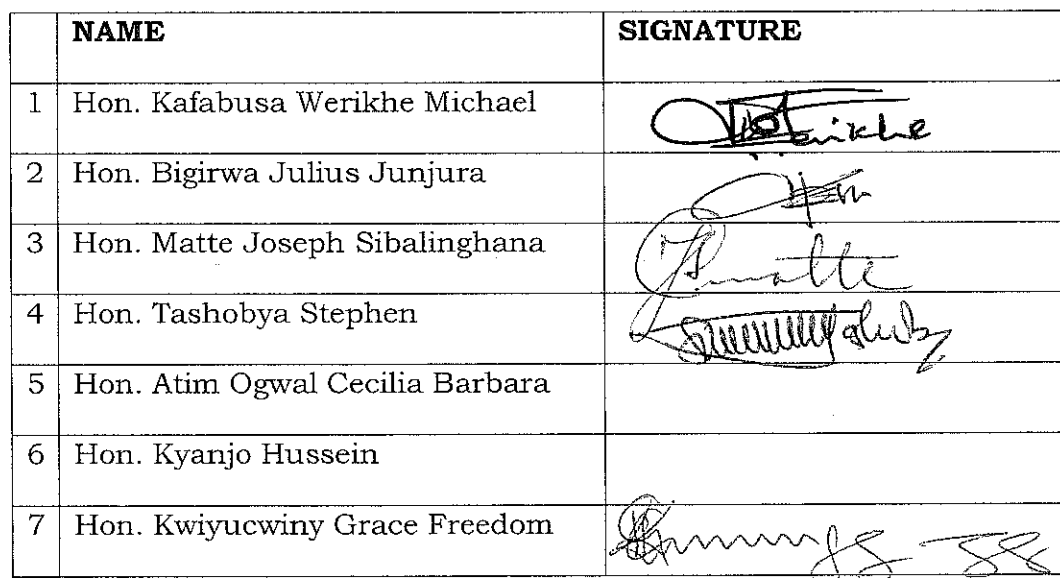 NAME SIGNATURE
1 Hon. Kafabusa Werikhe Michael
2 Hon. Bigirwa Julius Junjura
3 Hon. Matte Joseph Sibalinghana
4 Hon. Tashobya Stephen
5 Hon. Atim Ogwal Cecilia Barbara
6 Hon. Kyanjo Hussein
7 Hon. Kwiyucwiny Grace Freedom